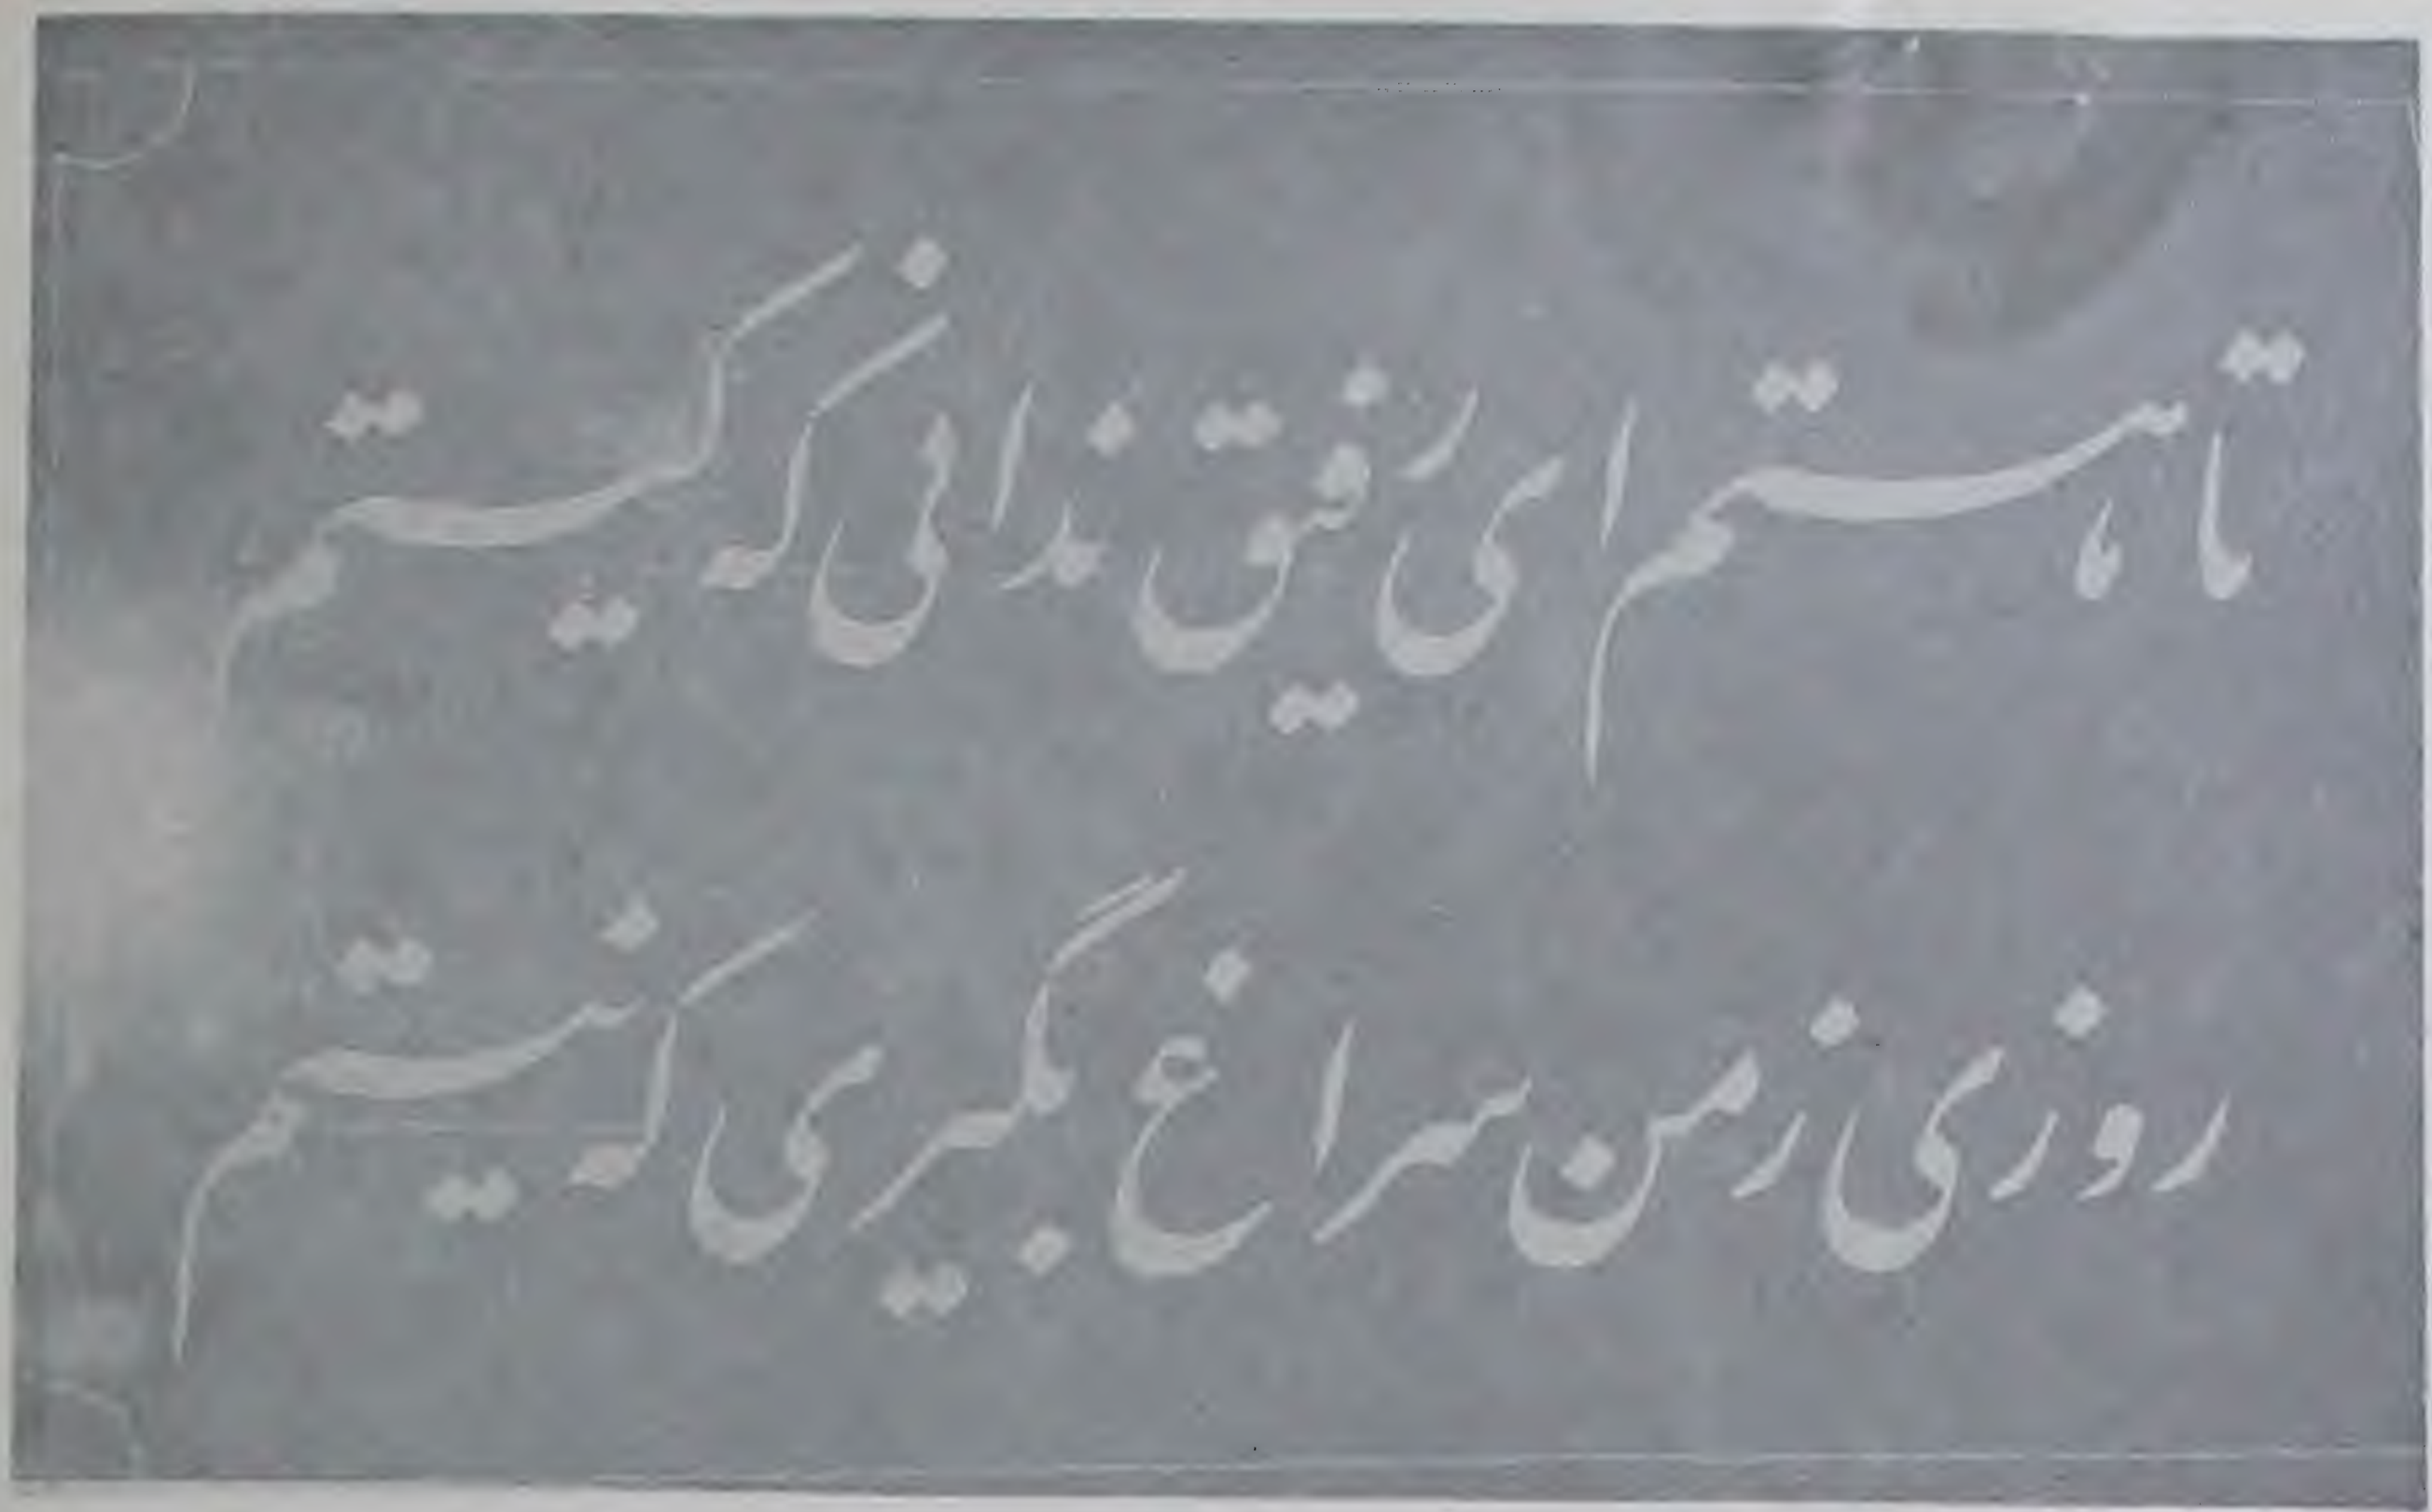 تا هستم ای رفیق ندانی که کیستم
روزی ز من سراغ بگیری که نیستم